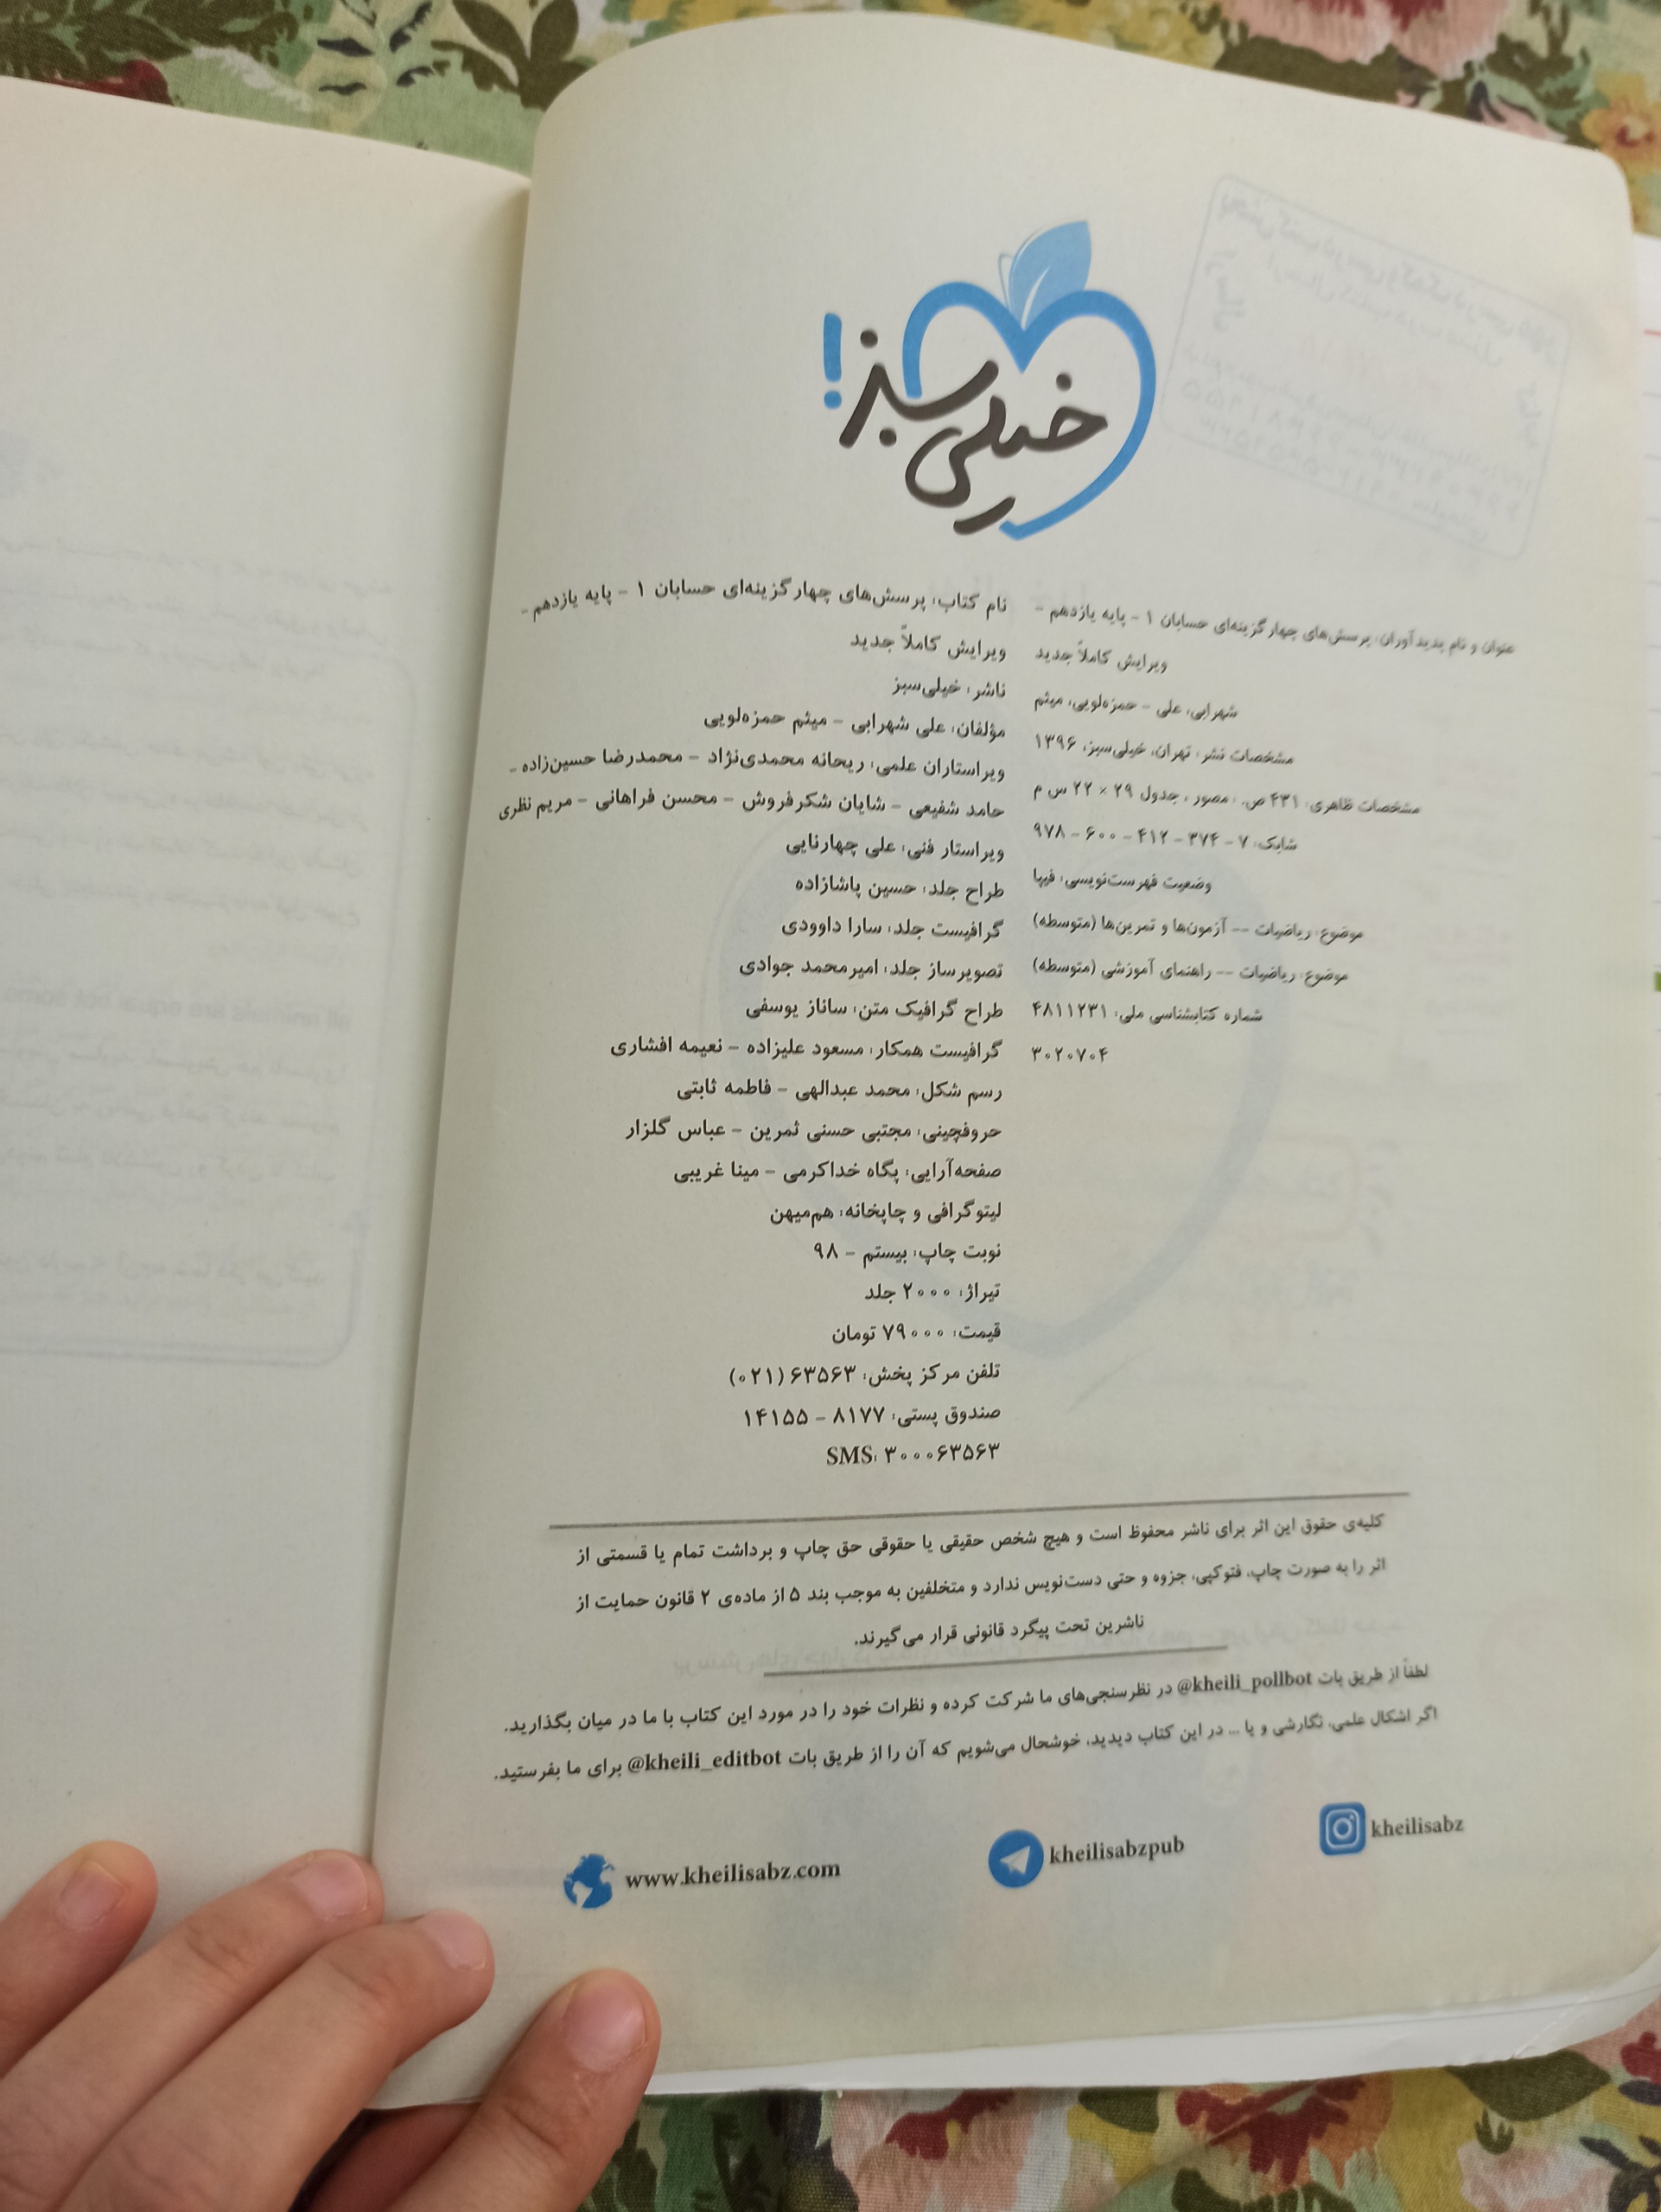 خیلی سبز!
عنوان و نام پدیدآوران: پرسش‌های چهارگزینه‌ای حسابان ۱ - پایه یازدهم -
ویرایش کاملاً جدید
شهرابی، علی - حمزه‌لویی، میثم
مشخصات نشر: تهران، خیلی‌سبز، ۱۳۹۶
مشخصات ظاهری: ۴۳۱ ص.: مصور، جدول ۲۹ × ۲۲ س م
شابک: ۷ - ۳۷۴ - ۴۱۲ - ۶۰۰ - ۹۷۸
وضعیت فهرست‌نویسی: فیپا
موضوع: ریاضیات -- آزمون‌ها و تمرین‌ها (متوسطه)
موضوع: ریاضیات -- راهنمای آموزشی (متوسطه)
شماره کتابشناسی ملی: ۴۸۱۱۲۳۱
۳۰۲۰۷۰۴
نام کتاب: پرسش‌های چهارگزینه‌ای حسابان ۱ - پایه یازدهم -
ویرایش کاملاً جدید
ناشر: خیلی‌سبز
مؤلفان: علی شهرابی - میثم حمزه‌لویی
ویراستاران علمی: ریحانه محمدی‌نژاد - محمدرضا حسین‌زاده -
حامد شفیعی - شایان شکرفروش - محسن فراهانی - مریم نظری
ویراستار فنی: علی چهارنایی
طراح جلد: حسین پاشازاده
گرافیست جلد: سارا داوودی
تصویرساز جلد: امیرمحمد جوادی
طراح گرافیک متن: ساناز یوسفی
گرافیست همکار: مسعود علیزاده - نعیمه افشاری
رسم شکل: محمد عبدالهی - فاطمه ثابتی
حروفچینی: مجتبی حسنی ثمرین - عباس گلزار
صفحه‌آرایی: پگاه خداکرمی - مینا غریبی
لیتوگرافی و چاپخانه: هم‌میهن
نوبت چاپ: بیستم - ۹۸
تیراژ: ۲۰۰۰ جلد
قیمت: ۷۹۰۰۰ تومان
تلفن مرکز پخش: ۶۳۵۶۳ (۰۲۱)
صندوق پستی: ۸۱۷۷ - ۱۴۱۵۵
SMS: ۳۰۰۰۶۳۵۶۳
کلیه‌ی حقوق این اثر برای ناشر محفوظ است و هیچ شخص حقیقی یا حقوقی حق چاپ و برداشت تمام یا قسمتی از
اثر را به صورت چاپ، فتوکپی، جزوه و حتی دست‌نویس ندارد و متخلفین به موجب بند ۵ از ماده‌ی ۲ قانون حمایت از
ناشرین تحت پیگرد قانونی قرار می‌گیرند.
لطفاً از طریق بات @kheili_pollbot در نظرسنجی‌های ما شرکت کرده و نظرات خود را در مورد این کتاب با ما در میان بگذارید.
اگر اشکال علمی، نگارشی و یا ... در این کتاب دیدید، خوشحال می‌شویم که آن را از طریق بات @kheili_editbot برای ما بفرستید.
kheilisabz
kheilisabzpub
www.kheilisabz.com